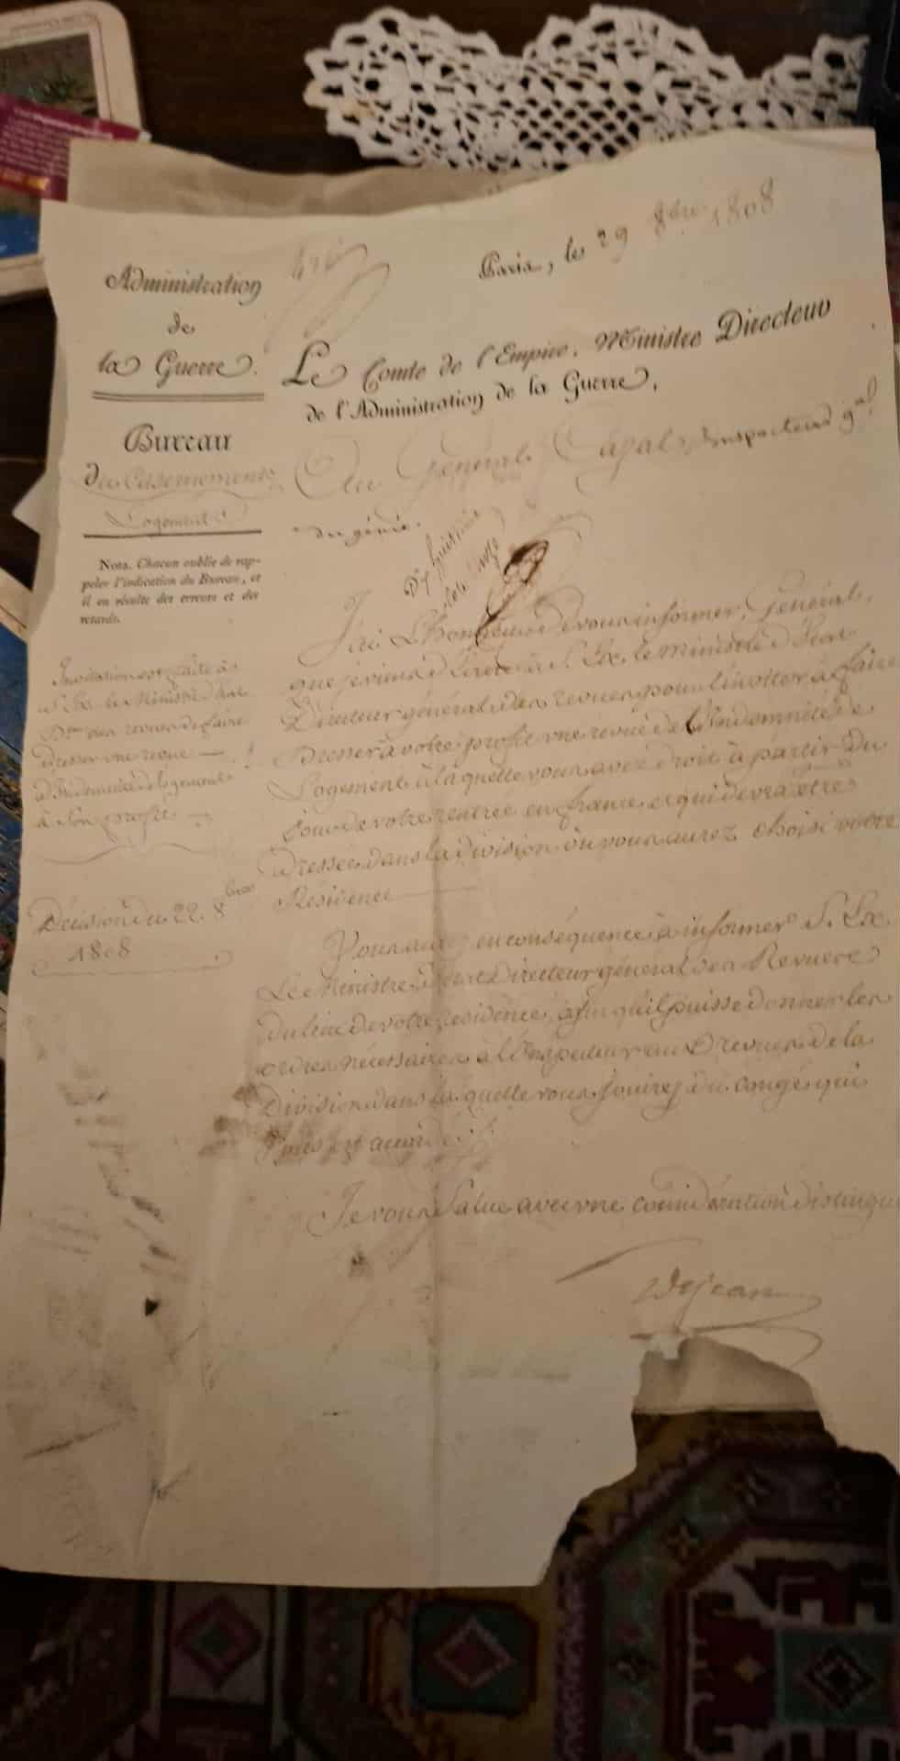 Paris, le 29 8bre 1808
Administration
de
la Guerre.
Bureau
du Casernement
Logement
Nota. Chacun oublie de rap-
peler l'indication du Bureau, et
il en résulte des erreurs et des
retards.
Invitation est faite à
S. Exc. le Ministre d'Etat
Dr. des revues de faire
dresser une revue
d'Indemnité de logement
à son profit
Décision du 22 8bre
1808
Le Comte de l'Empire, Ministre Directeur
de l'Administration de la Guerre,
Au Général Cafal, Inspecteur gal
du génie.
J'ai L'honneur de vous informer, Général,
que je viens d'écrire à S. Ex. le Ministre d'Etat
Directeur général des revues pour l'inviter à faire
Dresser à votre profit une revue de l'Indemnité de
Logement à laquelle vous avez droit à partir du
jour de votre rentrée en france, et qui devra être
Dressée dans la division où vous aurez choisi votre
Résidence
Vous aurez en conséquence à informer S. Ex.
Le Ministre d'Etat Directeur général des Revues
du lieu de votre résidence, afin qu'il puisse donner les
ordres nécessaires à l'Inspecteur aux Revues de la
Division dans laquelle vous jouirez du congé qui
vous est accordé.
Je vous Salue avec une considération distingu
Dejean